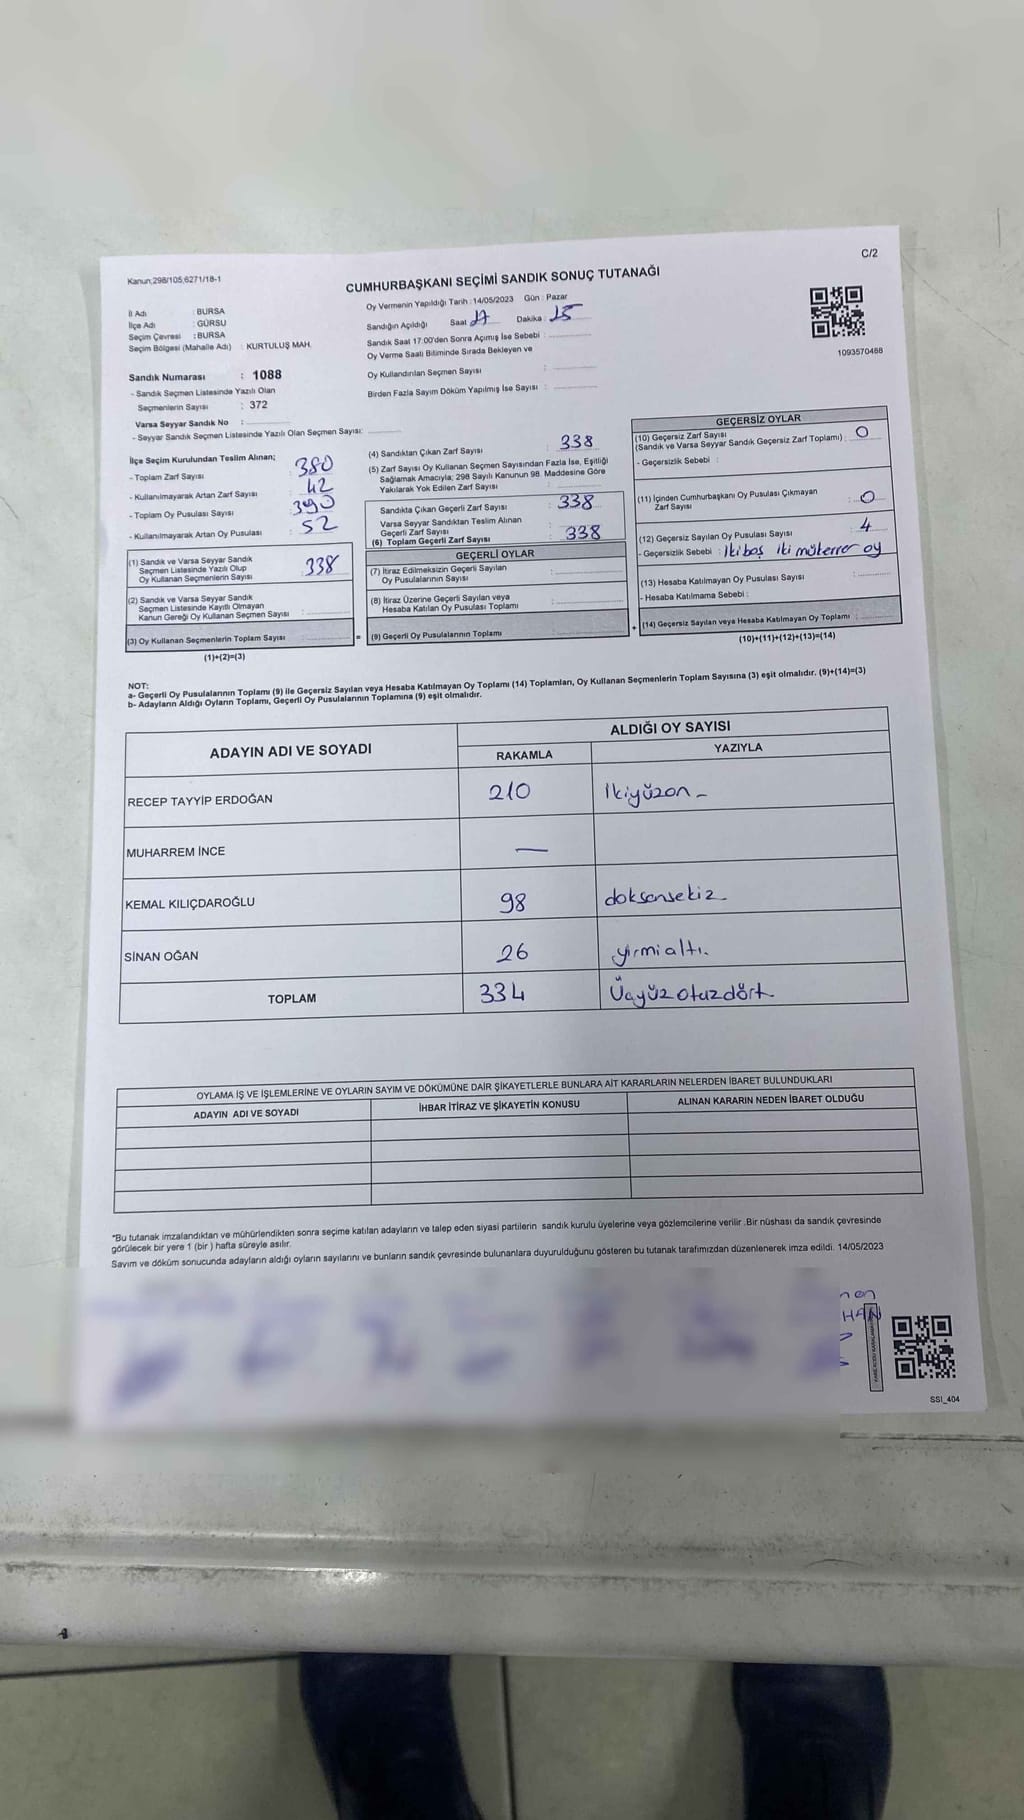 Kanun;298/105;6271/18-1
C/2
CUMHURBAŞKANI SEÇİMİ SANDIK SONUÇ TUTANAĞI
İl Adı : BURSA
İlçe Adı : GÜRSU
Seçim Çevresi : BURSA
Seçim Bölgesi (Mahalle Adı) : KURTULUŞ MAH.
Sandık Numarası : 1088
- Sandık Seçmen Listesinde Yazılı Olan
Seçmenlerin Sayısı : 372
Varsa Seyyar Sandık No :
- Seyyar Sandık Seçmen Listesinde Yazılı Olan Seçmen Sayısı:
Oy Vermenin Yapıldığı Tarih : 14/05/2023 Gün : Pazar
Sandığın Açıldığı Saat : 17 Dakika : 15
Sandık Saat 17.00'den Sonra Açımış İse Sebebi :
Oy Verme Saati Bitiminde Sırada Bekleyen ve
Oy Kullandırılan Seçmen Sayısı :
Birden Fazla Sayım Döküm Yapılmış İse Sayısı :
1093570468
İlçe Seçim Kurulundan Teslim Alınan;
- Toplam Zarf Sayısı : 380
- Kullanılmayarak Artan Zarf Sayısı : 42
- Toplam Oy Pusulası Sayısı : 390
- Kullanılmayarak Artan Oy Pusulası : 52
(1) Sandık ve Varsa Seyyar Sandık
Seçmen Listesinde Yazılı Olup
Oy Kullanan Seçmenlerin Sayısı : 338
(2) Sandık ve Varsa Seyyar Sandık
Seçmen Listesinde Kayıtlı Olmayan
Kanun Gereği Oy Kullanan Seçmen Sayısı :
(3) Oy Kullanan Seçmenlerin Toplam Sayısı :
(1)+(2)=(3)
(4) Sandıktan Çıkan Zarf Sayısı : 338
(5) Zarf Sayısı Oy Kullanan Seçmen Sayısından Fazla İse, Eşitliği
Sağlamak Amacıyla; 298 Sayılı Kanunun 98. Maddesine Göre
Yakılarak Yok Edilen Zarf Sayısı :
Sandıkta Çıkan Geçerli Zarf Sayısı : 338
Varsa Seyyar Sandıktan Teslim Alınan
Geçerli Zarf Sayısı :
(6) Toplam Geçerli Zarf Sayısı : 338
GEÇERLİ OYLAR
(7) İtiraz Edilmeksizin Geçerli Sayılan
Oy Pusulalarının Sayısı :
(8) İtiraz Üzerine Geçerli Sayılan veya
Hesaba Katılan Oy Pusulası Toplamı :
= (9) Geçerli Oy Pusulalarının Toplamı :
GEÇERSİZ OYLAR
(10) Geçersiz Zarf Sayısı
(Sandık ve Varsa Seyyar Sandık Geçersiz Zarf Toplamı) : 0
- Geçersizlik Sebebi :
(11) İçinden Cumhurbaşkanı Oy Pusulası Çıkmayan
Zarf Sayısı : 0
(12) Geçersiz Sayılan Oy Pusulası Sayısı : 4
- Geçersizlik Sebebi : İki boş iki mükerrer oy
(13) Hesaba Katılmayan Oy Pusulası Sayısı :
- Hesaba Katılmama Sebebi :
+ (14) Geçersiz Sayılan veya Hesaba Katılmayan Oy Toplamı :
(10)+(11)+(12)+(13)=(14)
NOT:
a- Geçerli Oy Pusulalarının Toplamı (9) ile Geçersiz Sayılan veya Hesaba Katılmayan Oy Toplamı (14) Toplamları, Oy Kullanan Seçmenlerin Toplam Sayısına (3) eşit olmalıdır. (9)+(14)=(3)
b- Adayların Aldığı Oyların Toplamı, Geçerli Oy Pusulalarının Toplamına (9) eşit olmalıdır.
ADAYIN ADI VE SOYADI
ALDIĞI OY SAYISI
RAKAMLA YAZIYLA
RECEP TAYYİP ERDOĞAN 210 İkiyüzon -
MUHARREM İNCE —
KEMAL KILIÇDAROĞLU 98 doksansekiz
SİNAN OĞAN 26 yirmialtı.
TOPLAM 334 Üçyüzotuzdört
OYLAMA İŞ VE İŞLEMLERİNE VE OYLARIN SAYIM VE DÖKÜMÜNE DAİR ŞİKAYETLERLE BUNLARA AİT KARARLARIN NELERDEN İBARET BULUNDUKLARI
ADAYIN ADI VE SOYADI İHBAR İTİRAZ VE ŞİKAYETİN KONUSU ALINAN KARARIN NEDEN İBARET OLDUĞU
*Bu tutanak imzalandıktan ve mühürlendikten sonra seçime katılan adayların ve talep eden siyasi partilerin sandık kurulu üyelerine veya gözlemcilerine verilir .Bir nüshası da sandık çevresinde
görülecek bir yere 1 (bir ) hafta süreyle asılır.
Sayım ve döküm sonucunda adayların aldığı oyların sayılarını ve bunların sandık çevresinde bulunanlara duyurulduğunu gösteren bu tutanak tarafımızdan düzenlenerek imza edildi. 14/05/2023
HAN
SSI_404